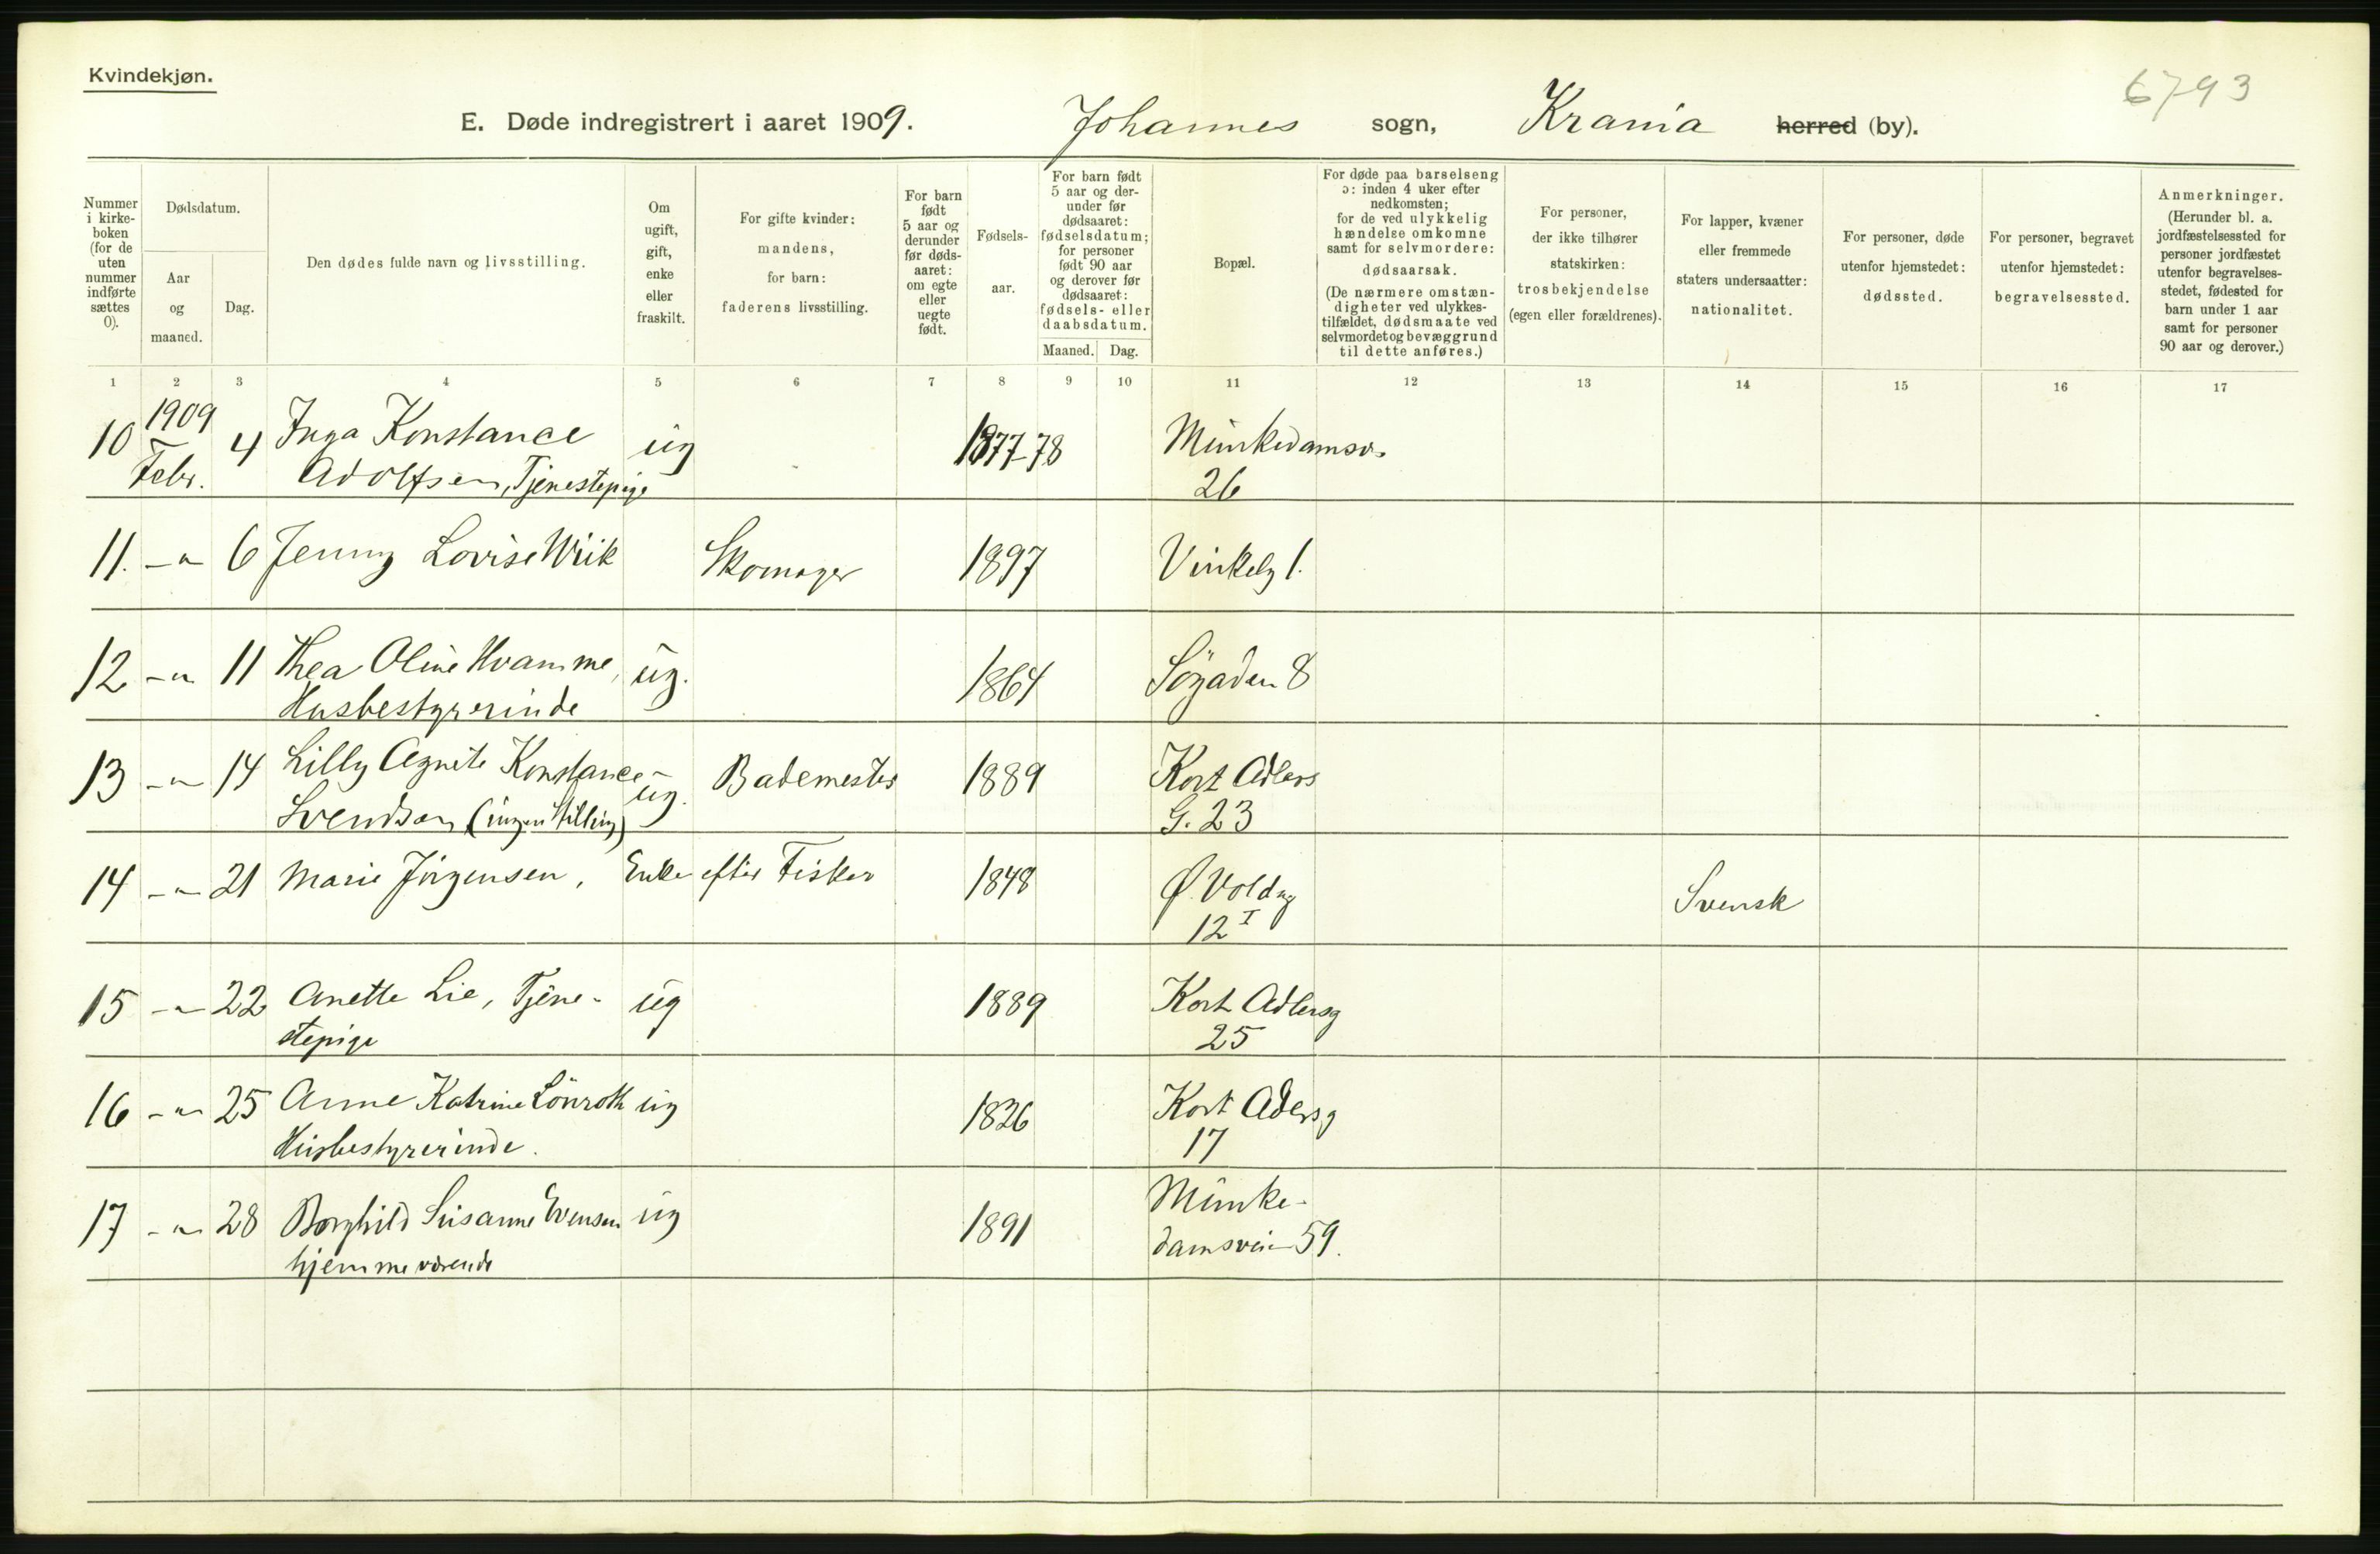 Kvindekjøn.
6793
E. Døde indregistrert i aaret 1909. Johannes sogn, Krania herred (by).
Nummer i kirke- boken (for de uten nummer indførte sættes 0).
Dødsdatum.
Aar og maaned.
Dag.
Den dødes fulde navn og livsstilling.
Om ugift, gift, enke eller fraskilt.
For gifte kvinder: mandens, for barn: faderens livsstilling.
For barn født 5 aar og derunder før døds- aaret: om egte eller uegte født.
Fødsels- aar.
For barn født 5 aar og der- under før dødsaaret: fødselsdatum; for personer født 90 aar og derover før dødsaaret: fødsels- eller daabsdatum.
Maaned. Dag.
Bopæl.
For døde paa barselseng ɔ: inden 4 uker efter nedkomsten; for de ved ulykkelig hændelse omkomne samt for selvmordere: dødsaarsak. (De nærmere omstæn- digheter ved ulykkes- tilfældet, dødsmaate ved selvmordet og bevæggrund til dette anføres.)
For personer, der ikke tilhører statskirken: trosbekjendelse (egen eller forældrenes).
For lapper, kvæner eller fremmede staters undersaatter: nationalitet.
For personer, døde utenfor hjemstedet: dødssted.
For personer, begravet utenfor hjemstedet: begravelsessted.
Anmerkninger. (Herunder bl. a. jordfæstelsessted for personer jordfæstet utenfor begravelses- stedet, fødested for barn under 1 aar samt for personer 90 aar og derover.)
1 2 3 4 5 6 7 8 9 10 11 12 13 14 15 16 17
1909
10 Febr. 4 Inga Konstance ug 1877-78 Munkedamsv.
Adolfsen, Tjenestepige 26
11. -"- 6 Jenny Lovise Wiik Skomager 1897 Vinkelg 1.
12 -"- 11 Thea Oline Hvamme, ug. 1864 Søgaden 8
Husbestyrerinde
13 -"- 14 Lilly Agnete Konstance ug. Bademester 1889 Kort Adlers
Svendsen (ingen Stilling) G. 23
14 -"- 21 Marie Jørgensen, Enke efter Fisker 1848 Ø. Voldg Svensk
12 I
15 -"- 22 Anette Lie, Tjene- ug 1889 Kort Adlersg
stepige 25
16 -"- 25 Anne Katrine Lönroth ug 1826 Kort Adersg
Husbestyrerinde. 17
17 -"- 28 Borghild Susanne Evensen ug 1891 Munke-
hjemmeværende damsveien 59.